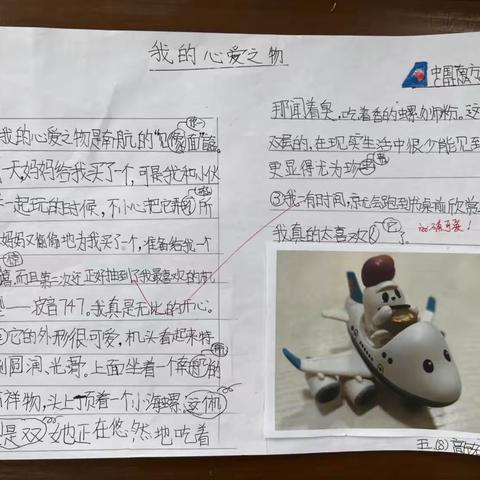 我的心爱之物
我的心爱之物是南航的"
天,妈妈给我买了一个,可是我和小伙
一起玩的时候,不小心把它
妈妈又偷偷地为我买了一个,准备给我一个
喜,而且第二次还正好抽到了我最喜欢的机
型——波音747。我真是无比的开心。
它的外形很可爱,机头看起来特
别圆润、光滑。上面坐着一个南航的
吉祥物,头上顶着一个小海螺。这个机
是双 她正在悠然地吃着
中国南方
那闻着臭,吃着香的螺蛳粉。这
双层的,在现实生活中很少能见到
更显得尤为珍
③我一有时间,就会跑到书桌前欣赏
我真的太喜欢 了。
五(8)